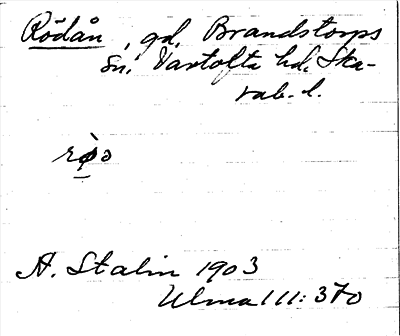 Rödån, gd, Brandstorps
sn. Vartofta hd. Ska-
rab. l.
A. Stalin 1903
Ulma 111:370